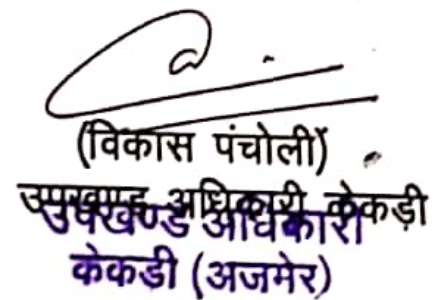 (विकास पंचोली)
उपखण्ड अधिकारी केकड़ी
उपखण्ड अधिकारी
केकडी (अजमेर)